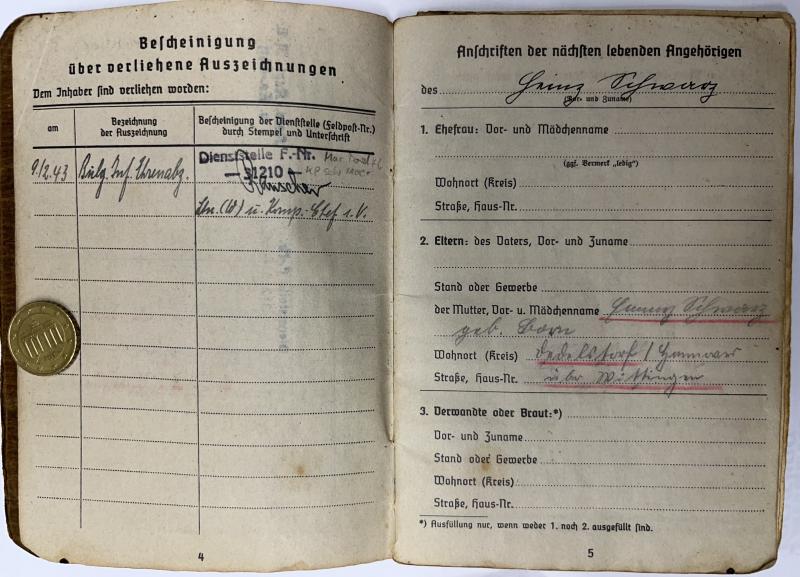 Bescheinigung
über verliehene Auszeichnungen
Dem Inhaber sind verliehen worden:
am
Bezeichnung
der Auszeichnung
Bescheinigung der Dienststelle (Feldpost-Nr.)
durch Stempel und Unterschrift
9.12.43 Bulg. Inf. Ehrenabz.
Dienststelle F.-Nr.
— 31210 —
Ltn. (W) u. Komp.-Chef i. V.
4
Anschriften der nächsten lebenden Angehörigen
des Heinz Schwarz
(Vor- und Zuname)
1. Ehefrau: Vor- und Mädchenname
(ggf. Vermerk „ledig")
Wohnort (Kreis)
Straße, Haus-Nr.
2. Eltern: des Vaters, Vor- und Zuname
Stand oder Gewerbe
der Mutter, Vor- u. Mädchenname Schwarz
geb. Born
Wohnort (Kreis) Dedelstorf / Hannover
Straße, Haus-Nr. über Wittingen
3. Verwandte oder Braut:*)
Vor- und Zuname
Stand oder Gewerbe
Wohnort (Kreis)
Straße, Haus-Nr.
*) Ausfüllung nur, wenn weder 1. noch 2. ausgefüllt sind.
5